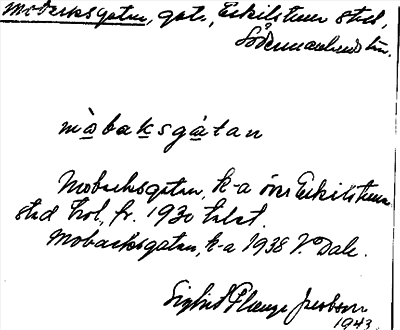 Mobacksgatan, gata, Eskilstuna stad,
Södermanlands län.
mò̀baksgátan
Mobacksgatan, k-a över Eskilstuna
stad , fr. 1930 talet.
Mobacksgatan, k-a 1938 V. Dale.
Sigfrid Plange Jacobson
1943.